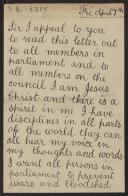 Fri April 7th
Sir I appeal to you
to read this letter out
to all members in
parliament and to
all members on the
council I am Jesus
Christ and there is a
spark in me I have
disciples in all parts
of the world they can
all hear my voice in
my thoughts and words
I want all persons in
parliament to prevent
wars and bloodshed